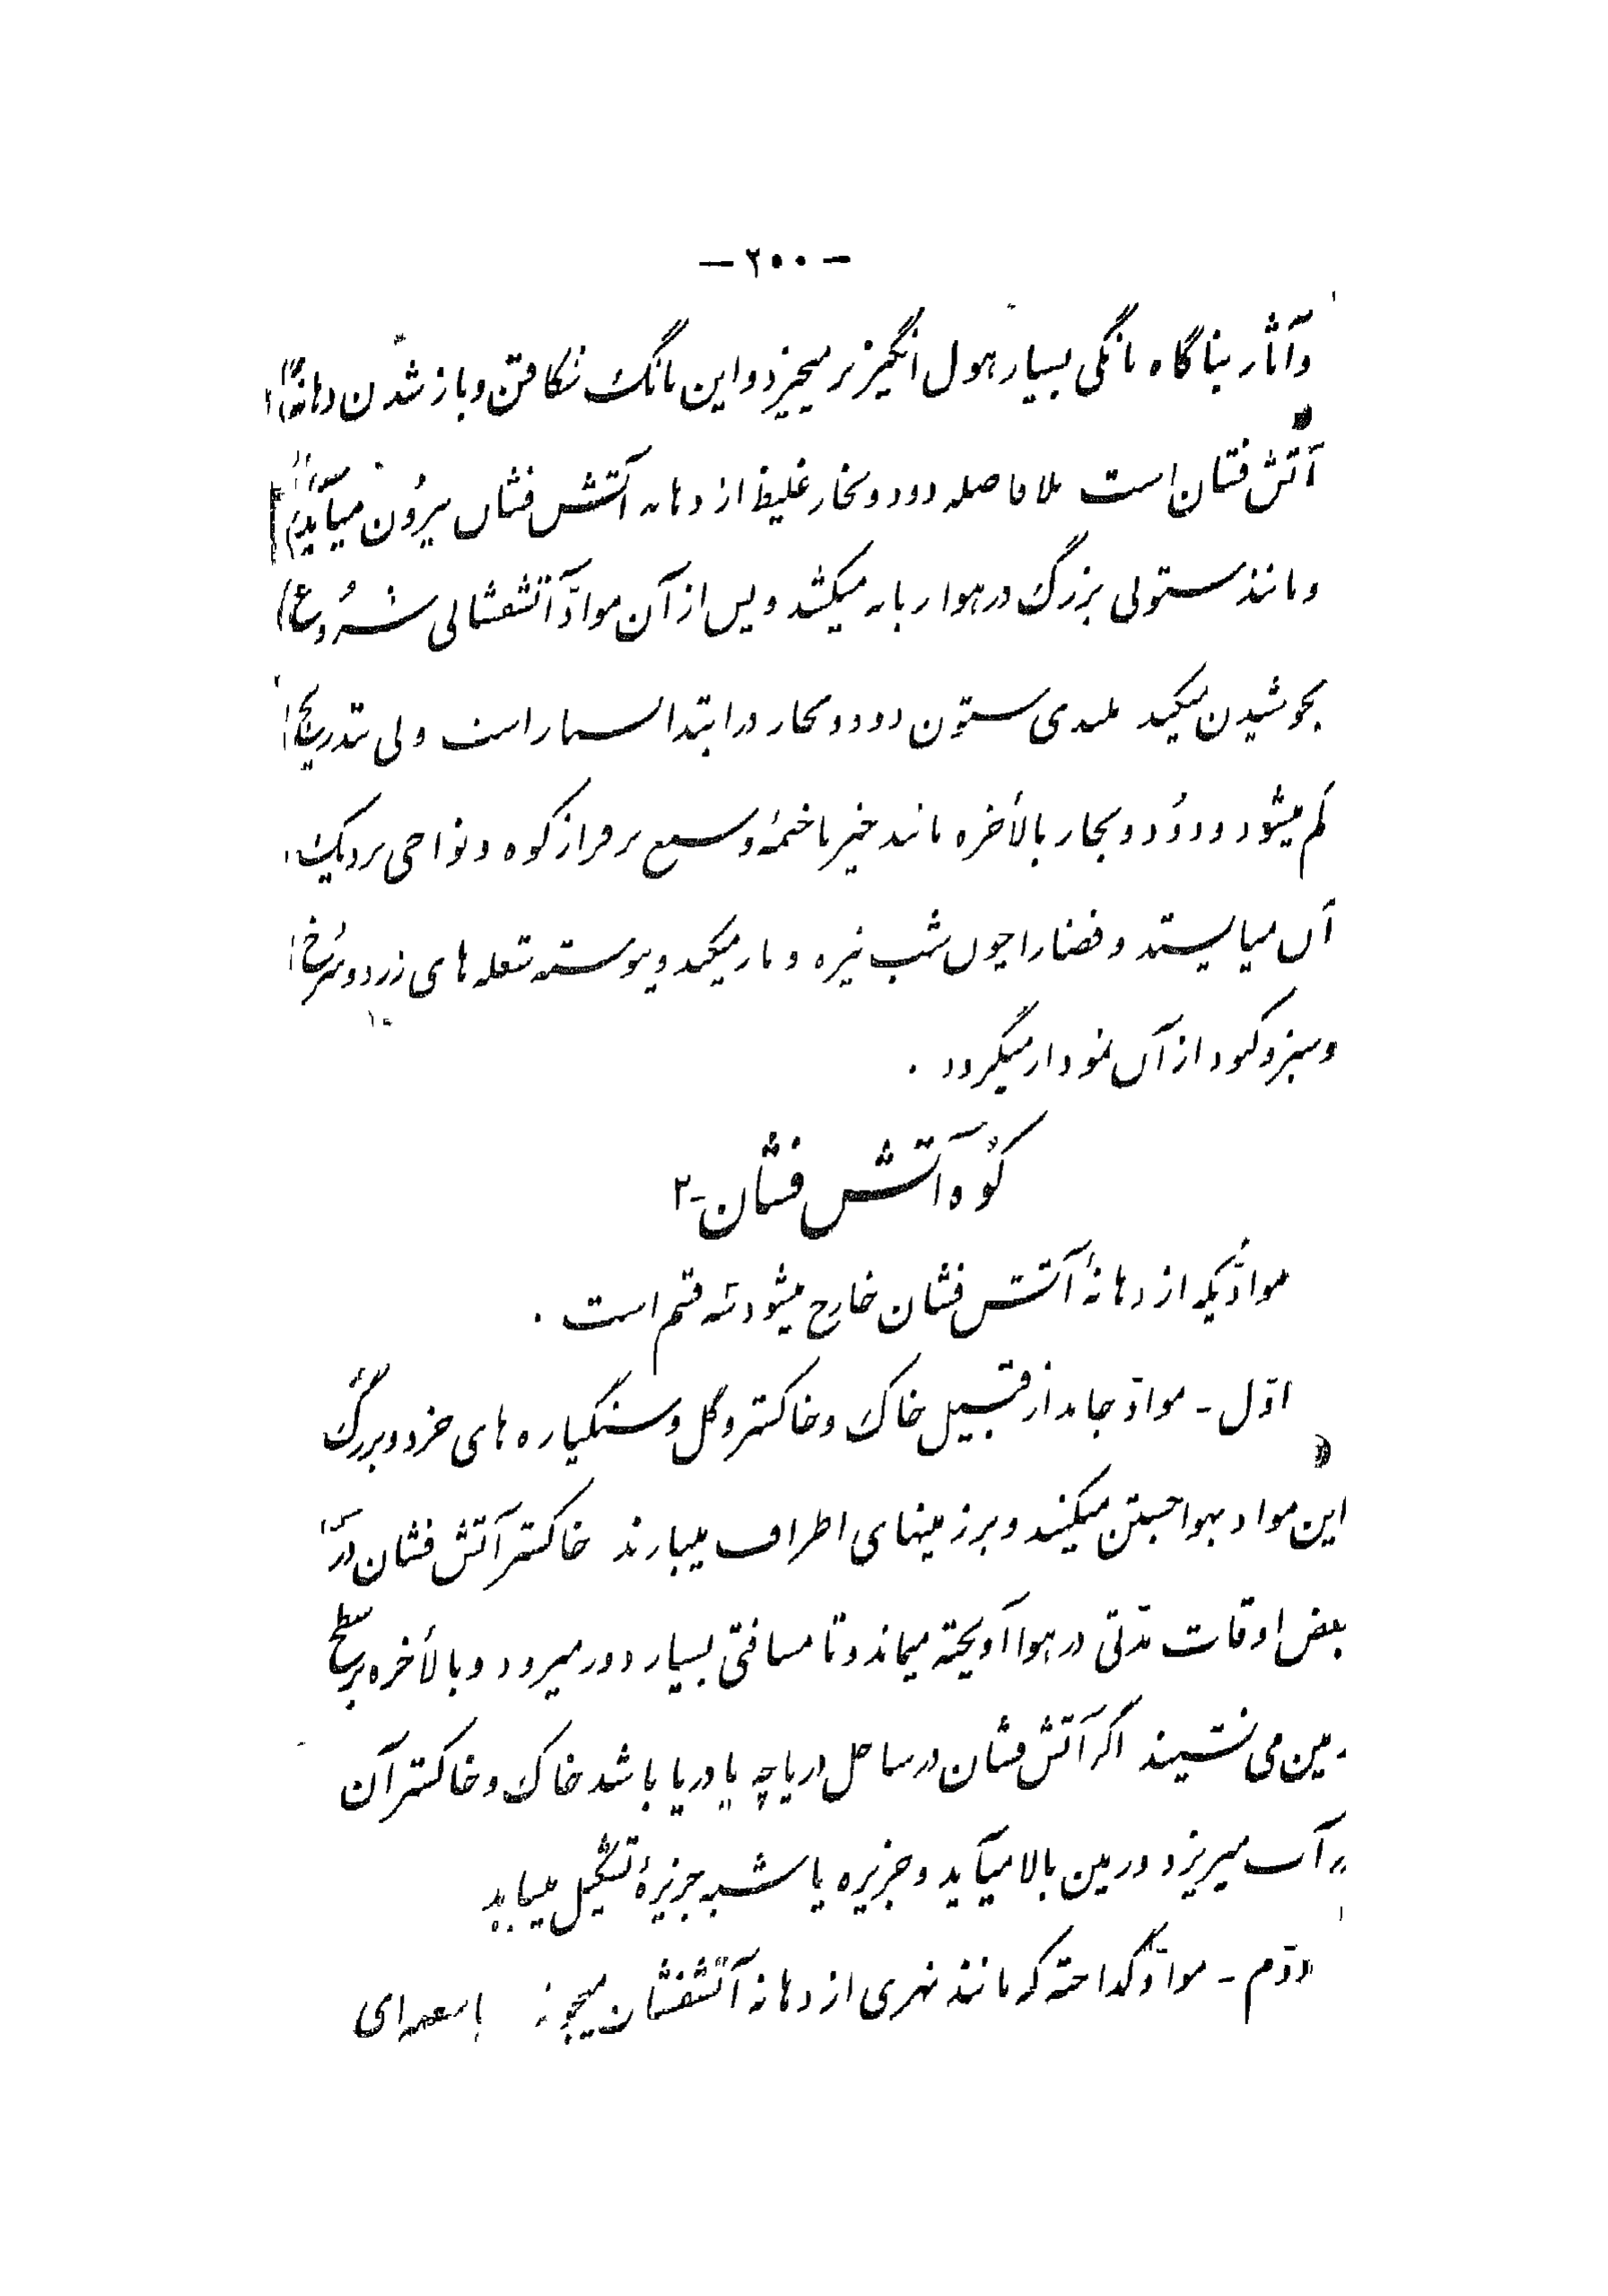 — ۲۰۰ —
و آثار بناگاه بانگی بسیار هول انگیز بر میخیزد و این بانگ شکافتن و باز شدن دهانهٔ
آتش فشان است بلافاصله دود و بخار غلیظ از دهانه آتش فشان بیرُون میآید
و مانند ستونی بزرگ در هوا زبانه میکشد و پس از آن موادّ آتشفشانی شُروع
بجوشیدن میکند بلندی ستون دود و بخار در ابتدا بسیار است ولی بتدریج
کم میشود و دُود و بخار بالأخره مانند خیر یا خیمهٔ وسیع بر فراز کوه و نواحی نزدیک
آن میایستد و فضا را چون شب تیره و تار میکند و پیوسته شعله های زرد و سُرخ
و سبز و کبود از آن نمودار میگردد .
کُوه آتش فشان -۲
موادّیکه از دهانهٔ آتش فشان خارج میشود سَه قسم است .
اوّل - موادّ جامد از قبیل خاک و خاکستر و گل و سنگپاره های خرد و بزرگ
این مواد بهوا جستن میکنند و بر زمینهای اطراف میبارند خاکستر آتش فشان در
بعض اوقات مدّتی در هوا آویخته میماند و تا مسافتی بسیار دور میرود و بالأخره بر سطح
زمین می نشیند اگر آتش فشان در ساحل دریاچه یا دریا باشد خاک و خاکستر آن
در آب میریزد و زمین بالا میآید و جزیره یا شبه جزیرهٔ تشکیل مییابد
دوّم - موادّ گداخته که مانند نهری از دهانه آتشفشان